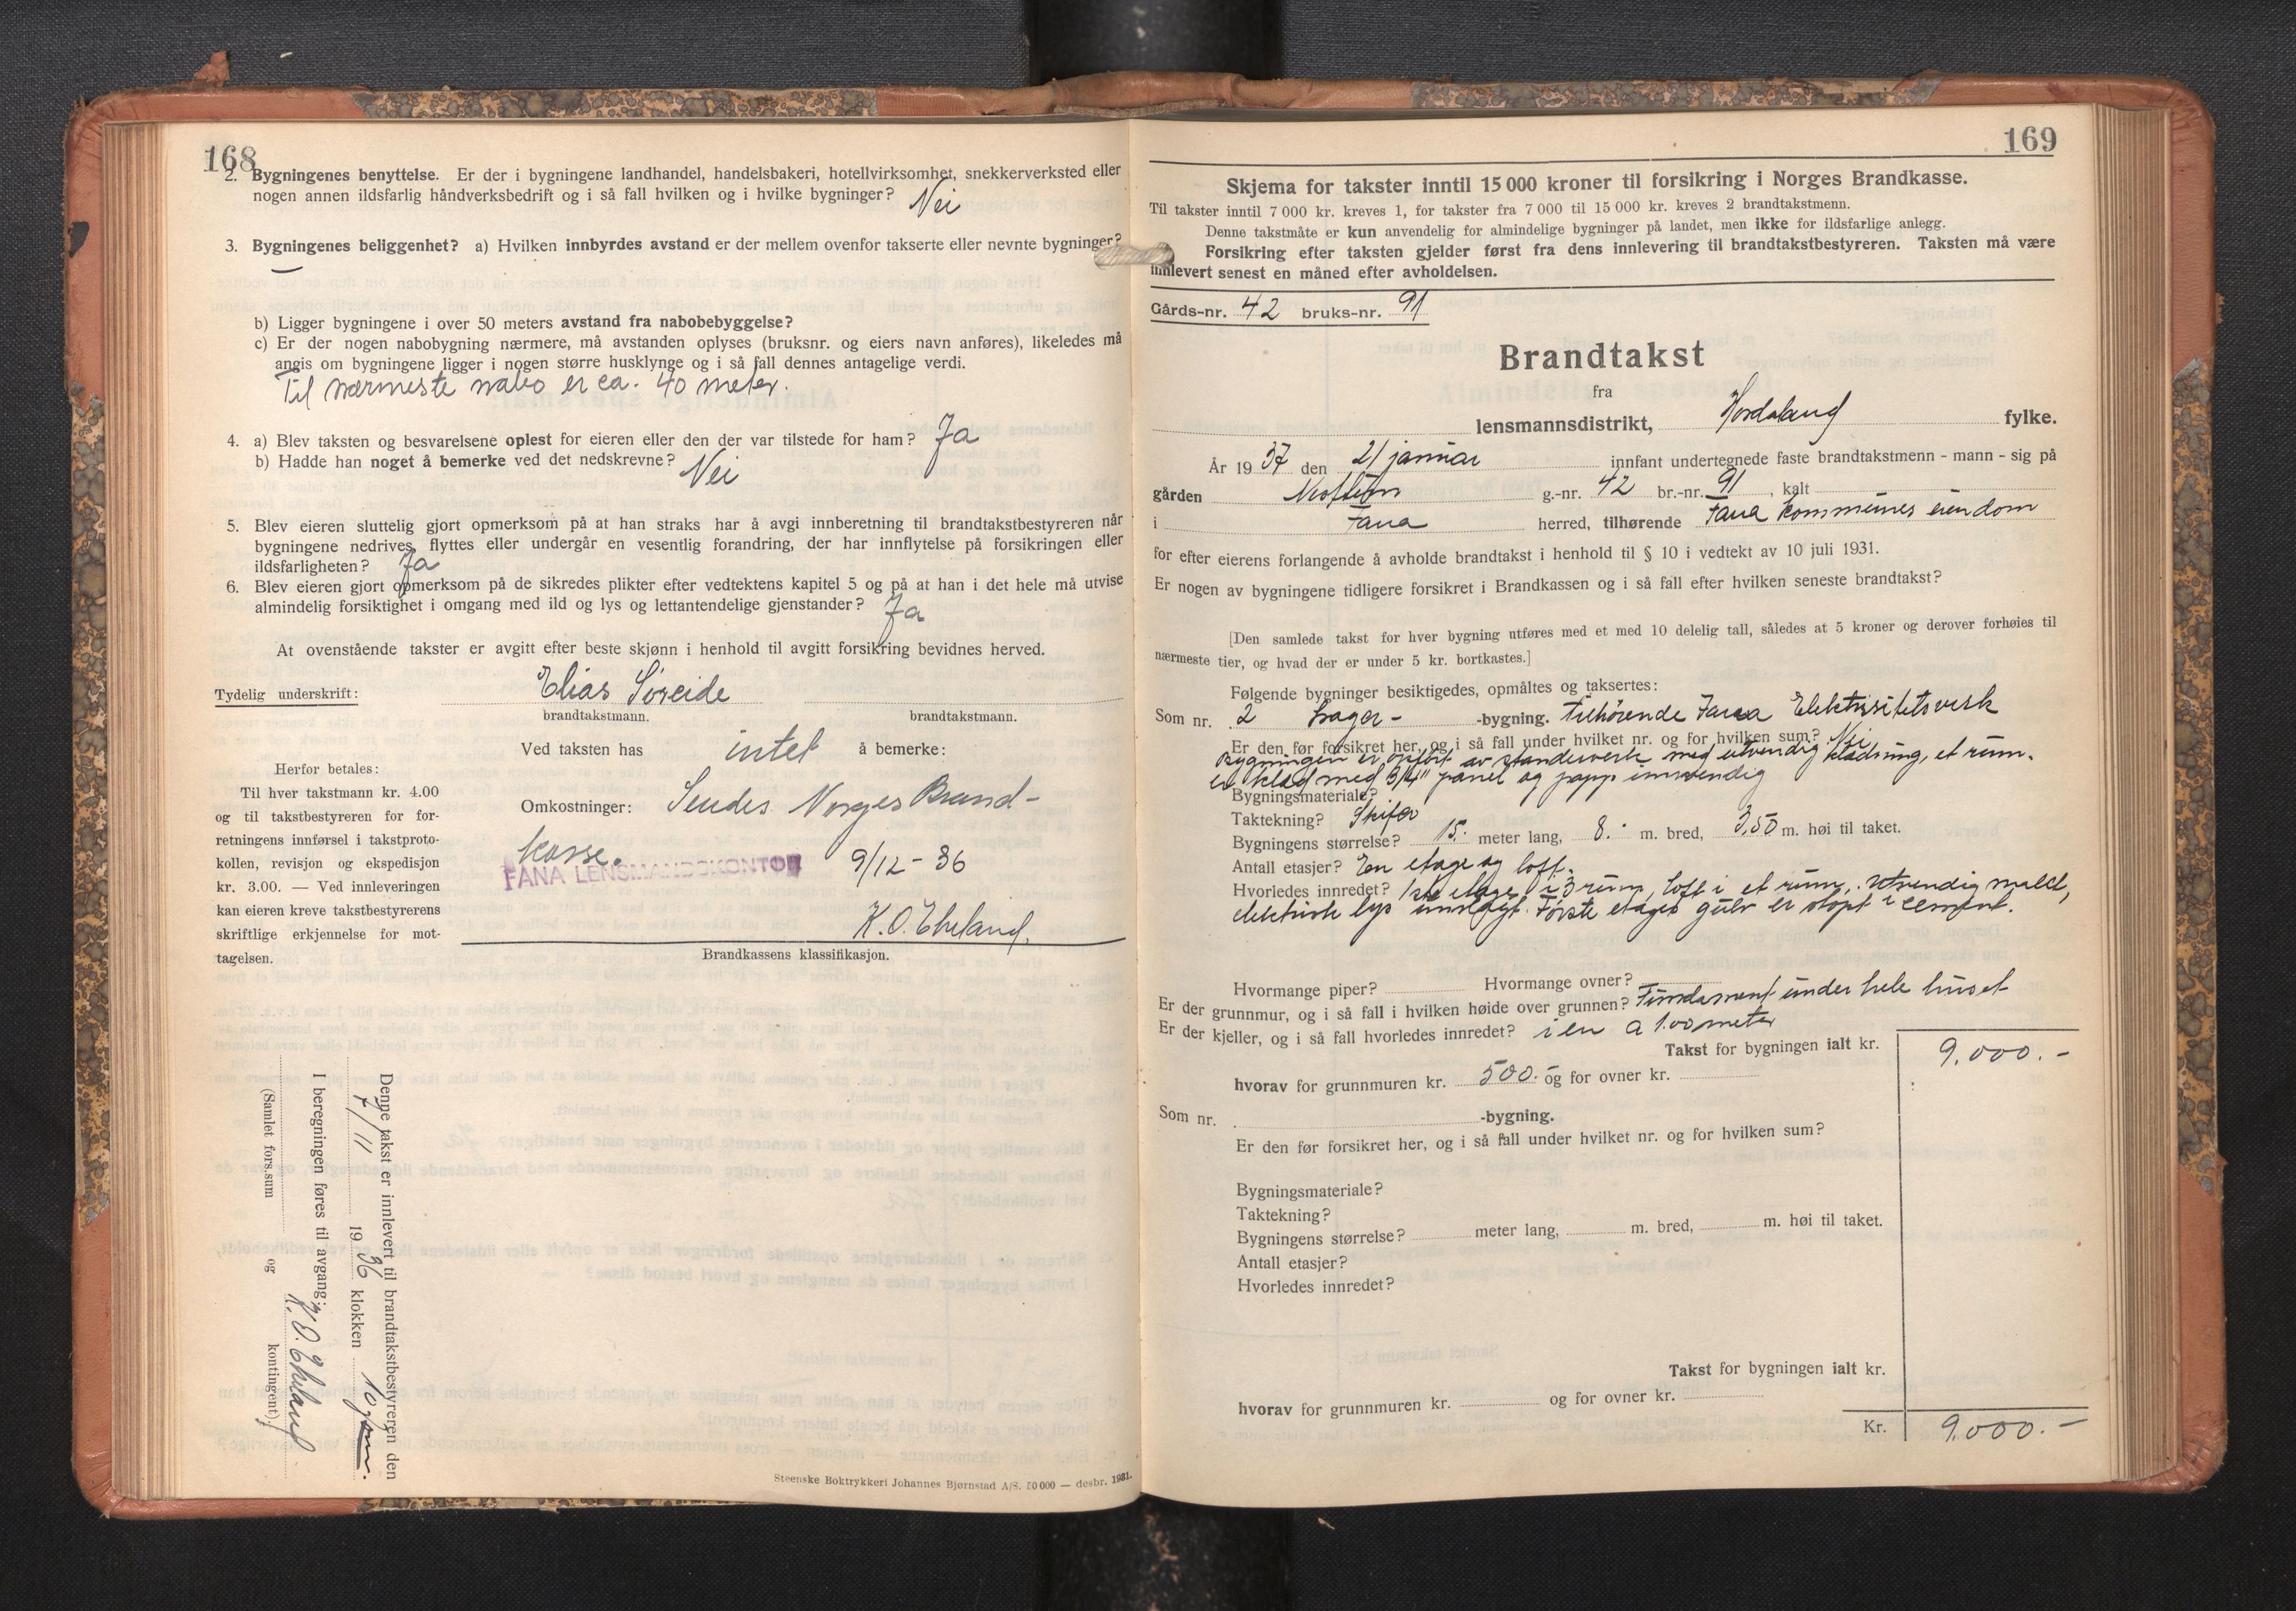 168
2. Bygningenes benyttelse. Er der i bygningene landhandel, handelsbakeri, hotellvirksomhet, snekkerverksted eller
nogen annen ildsfarlig håndverksbedrift og i så fall hvilken og i hvilke bygninger? Nei
3. Bygningenes beliggenhet? a) Hvilken innbyrdes avstand er der mellem ovenfor takserte eller nevnte bygninger?
—
b) Ligger bygningene i over 50 meters avstand fra nabobebyggelse?
c) Er der nogen nabobygning nærmere, må avstanden oplyses (bruksnr. og eiers navn anføres), likeledes må
angis om bygningene ligger i nogen større husklynge og i så fall dennes antagelige verdi.
Til nærmeste nabo er ca. 40 meter.
4. a) Blev taksten og besvarelsene oplest for eieren eller den der var tilstede for ham? Ja
b) Hadde han noget å bemerke ved det nedskrevne? Nei
5. Blev eieren sluttelig gjort opmerksom på at han straks har å avgi innberetning til brandtakstbestyreren når
bygningene nedrives, flyttes eller undergår en vesentlig forandring, der har innflytelse på forsikringen eller
ildsfarligheten? Ja
6. Blev eieren gjort opmerksom på de sikredes plikter efter vedtektens kapitel 5 og på at han i det hele må utvise
almindelig forsiktighet i omgang med ild og lys og lettantendelige gjenstander? Ja
At ovenstående takster er avgitt efter beste skjønn i henhold til avgitt forsikring bevidnes herved.
Tydelig underskrift: Elias Søreide
brandtakstmann. brandtakstmann.
Ved taksten has intet å bemerke:
Omkostninger: Sendes Norges Brand-
kasse.
FANA LENSMANDSKONTOR 9/12 - 36
K. O. Ekeland.
Brandkassens klassifikasjon.
Herfor betales:
Til hver takstmann kr. 4.00
og til takstbestyreren for for-
retningens innførsel i takstproto-
kollen, revisjon og ekspedisjon
kr. 3.00. — Ved innleveringen
kan eieren kreve takstbestyrerens
skriftlige erkjennelse for mot-
tagelsen.
Denne takst er innlevert til brandtakstbestyreren den
7/11 1936 klokken 10
I beregningen føres til avgang:
K. O. Ekeland
(Samlet fors.sum og kontingent)
Steenske Boktrykkeri Johannes Bjørnstad A/S. 50 000 — desbr. 1931.
169
Skjema for takster inntil 15 000 kroner til forsikring i Norges Brandkasse.
Til takster inntil 7 000 kr. kreves 1, for takster fra 7 000 til 15 000 kr. kreves 2 brandtakstmenn.
Denne takstmåte er kun anvendelig for almindelige bygninger på landet, men ikke for ildsfarlige anlegg.
Forsikring efter taksten gjelder først fra dens innlevering til brandtakstbestyreren. Taksten må være
innlevert senest en måned efter avholdelsen.
Gårds-nr. 42 bruks-nr. 91
Brandtakst
fra
lensmannsdistrikt, Hordaland fylke.
År 1937 den 21 januar innfant undertegnede faste brandtakstmenn - mann - sig på
gården g.-nr. 42 br.-nr. 91, kalt
i Fana herred, tilhørende Fana kommunes eiendom
for efter eierens forlangende å avholde brandtakst i henhold til § 10 i vedtekt av 10 juli 1931.
Er nogen av bygningene tidligere forsikret i Brandkassen og i så fall efter hvilken seneste brandtakst?
[Den samlede takst for hver bygning utføres med et med 10 delelig tall, således at 5 kroner og derover forhøies til
nærmeste tier, og hvad der er under 5 kr. bortkastes.]
Følgende bygninger besiktigedes, opmåltes og taksertes:
Som nr. 2 Lager- -bygning. tilhørende Fana Elektrisitetsverk
Er den før forsikret her, og i så fall under hvilket nr. og for hvilken sum? Nei
Bygningen er opført av standerverk med utvendig kledning, et rum.
er kledd med 3/4" panel og papp innvendig
Bygningsmateriale?
Taktekning? Skifer
Bygningens størrelse? 15. meter lang, 8. m. bred, 3,50 m. høi til taket.
Antall etasjer? En etage og loft.
Hvorledes innredet? 1ste etage i 3 rum, loft i et rum. Utvendig malt,
elektrisk lys innlagt. Første etages gulv er støpt i cement.
Hvormange piper? Hvormange ovner?
Er der grunnmur, og i så fall i hvilken høide over grunnen? Fundament under hele huset
Er der kjeller, og i så fall hvorledes innredet? i en a 1.00 meter
Takst for bygningen ialt kr. 9,000.-
hvorav for grunnmuren kr. 500.- og for ovner kr.
Som nr. -bygning.
Er den før forsikret her, og i så fall under hvilket nr. og for hvilken sum?
Bygningsmateriale?
Taktekning?
Bygningens størrelse? meter lang, m. bred, m. høi til taket.
Antall etasjer?
Hvorledes innredet?
Takst for bygningen ialt kr.
hvorav for grunnmuren kr. og for ovner kr.
Kr. 9,000.-